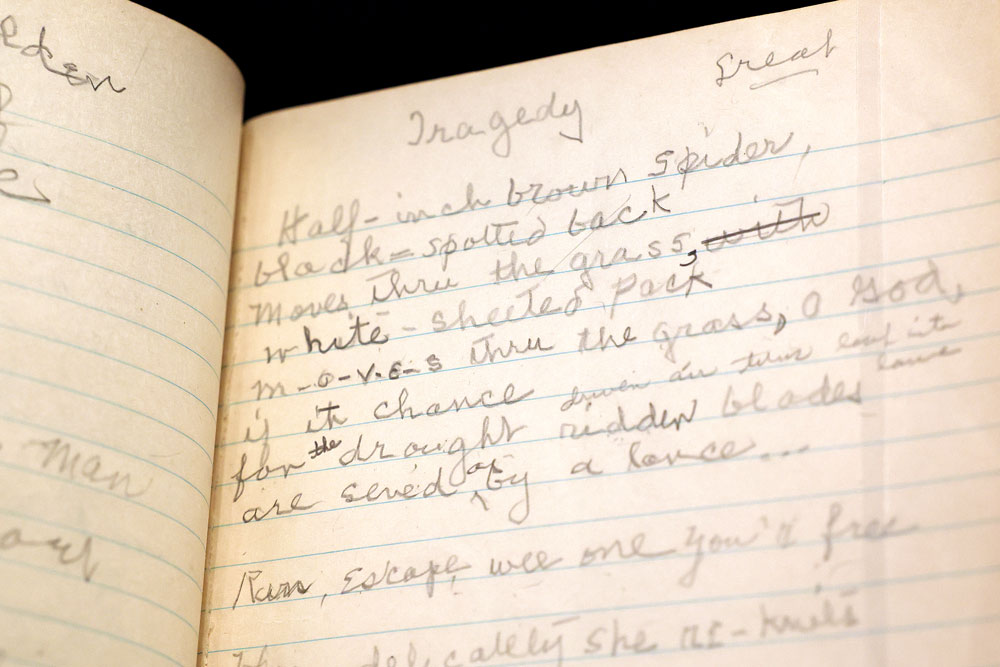 Man
Great
Tragedy
Half-inch brown spider,
black=spotted back
moves thru the grass, with
white-sheeted pack
m-o-v-e-s thru the grass, O God,
if it chance
driven air turns leaf into
lance
for the drought ridden blades
are seried as by a lance...
Run, Escape, wee one you'r free
delicately she re-knits